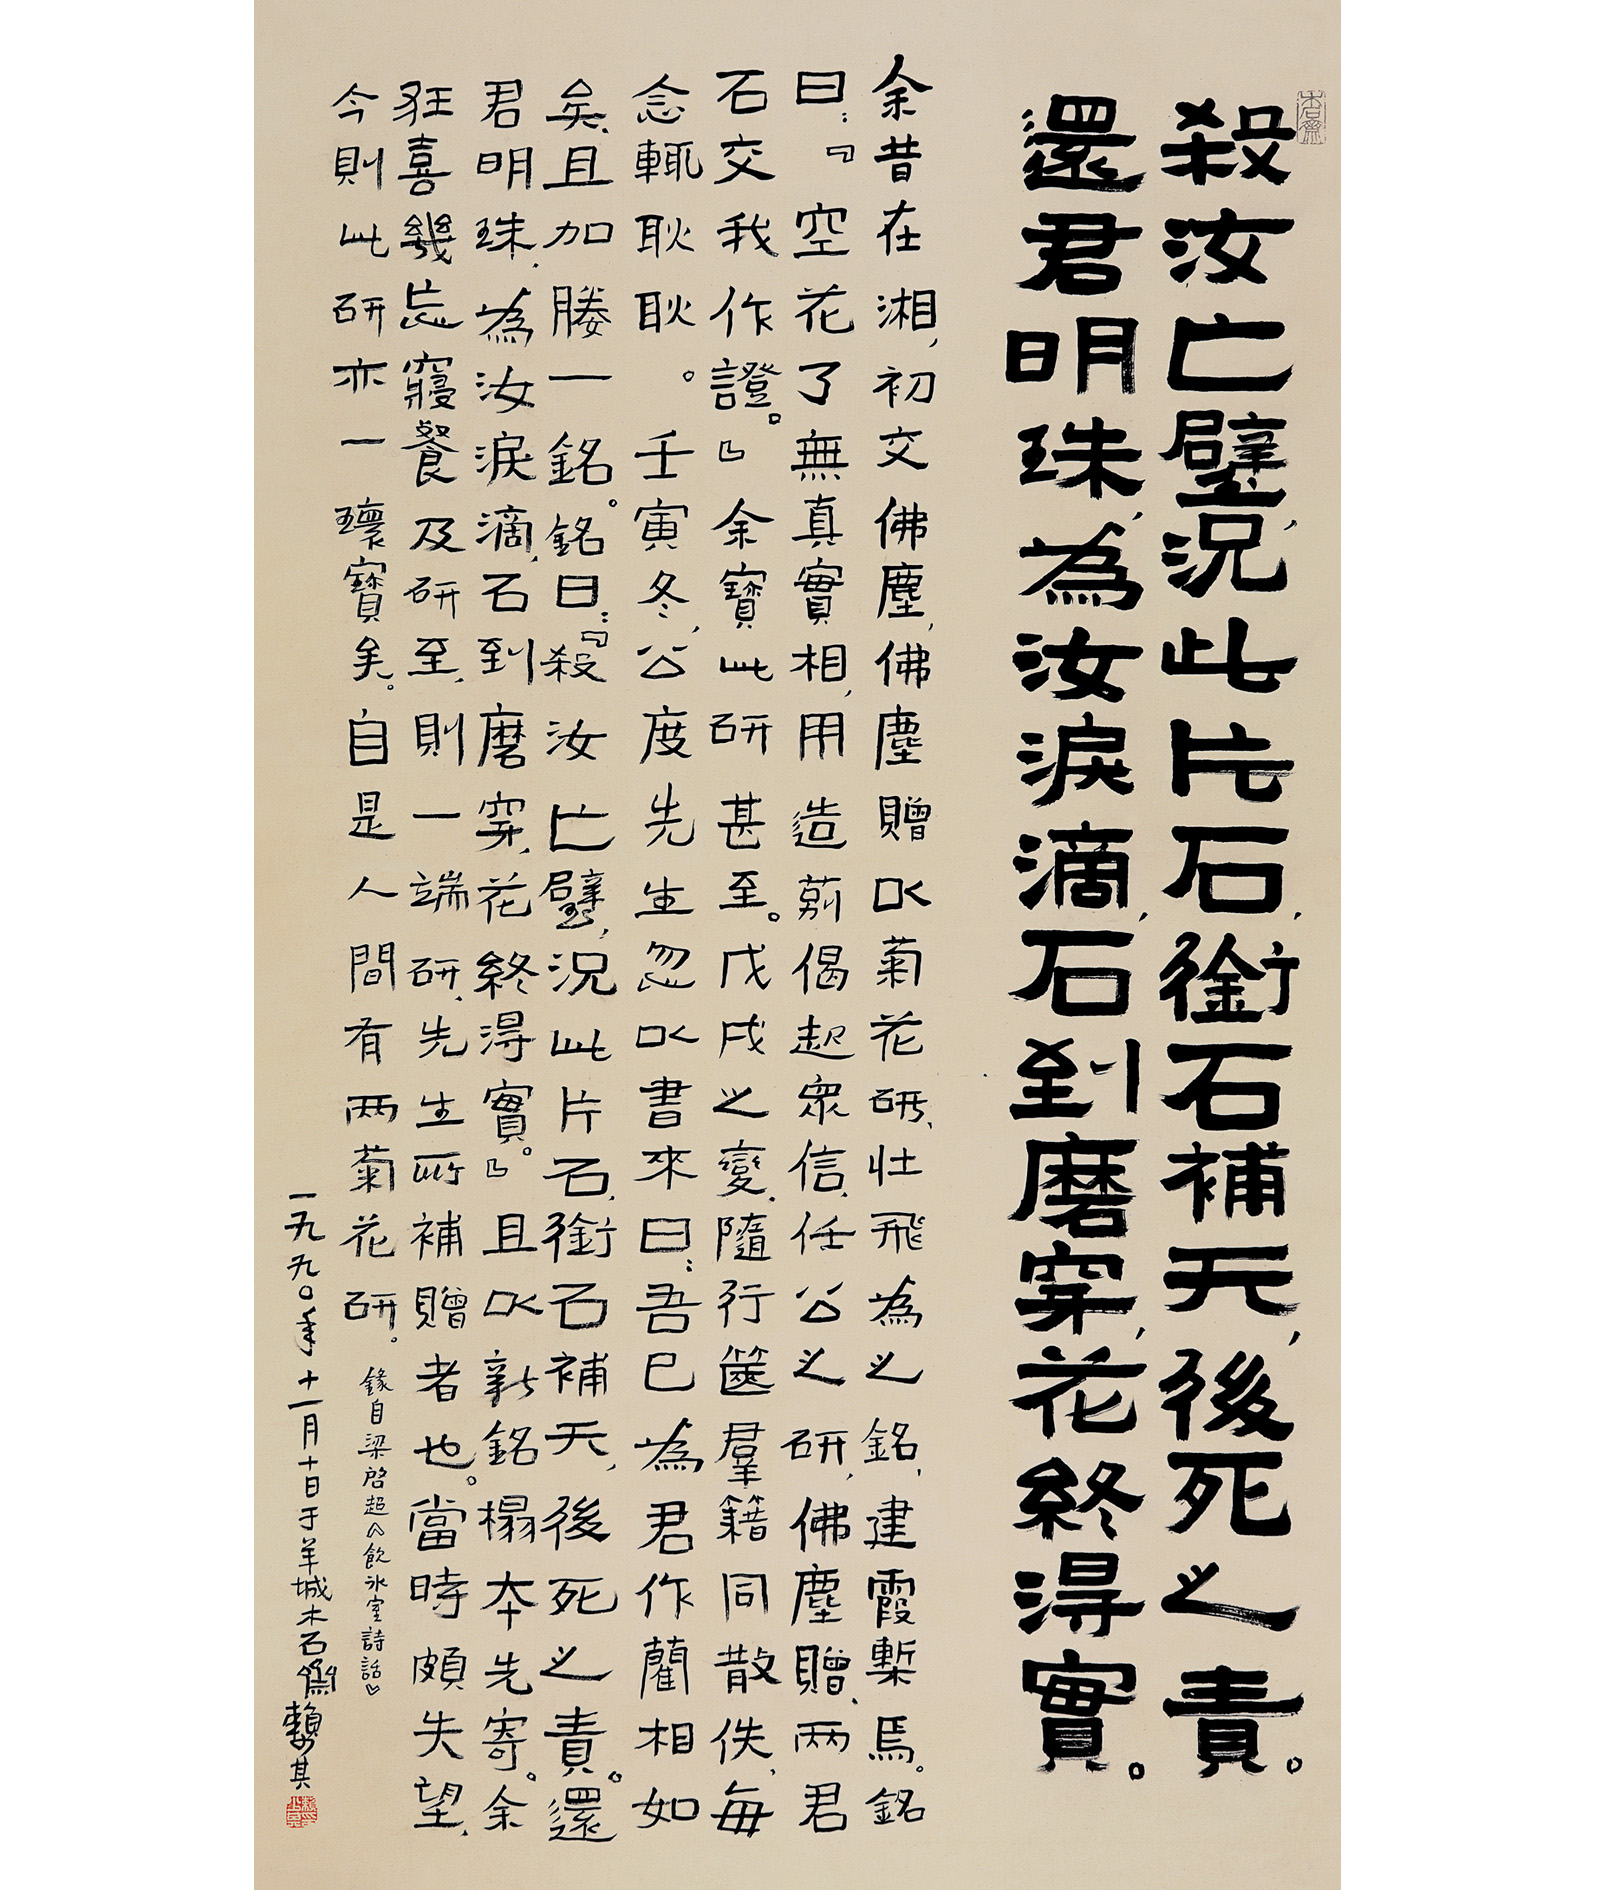 殺汝亡璧,況此片石,銜石補天,後死之責。
還君明珠,為汝淚滴,石到磨穿,花終得實。
余昔在湘,初交佛塵,佛塵贈以菊花研、壯飛為之銘,建霞槧焉。銘
曰:『空花了無真實相,用造莂偈起眾信,任公之研,佛塵贈,兩君
石交我作證。』余寶此研甚至。戊戌之變,隨行篋羣籍同散佚,每
念輒耿耿。壬寅冬,公度先生忽以書來曰:吾已為君作藺相如
矣,且加媵一銘。銘曰:『殺汝亡璧,況此片石,銜石補天,後死之責。還
君明珠,為汝淚滴,石到磨穿,花終得實。』且以新銘榻本先寄。余
狂喜幾忘寢餐及研至,則一端研,先生所補贈者也。當時頗失望,
今則此研亦一瓌寶矣。自是人間有兩菊花研。
錄自梁啓超《飲冰室詩話》
一九九〇年十一月十日于羊城木石齋賴少其